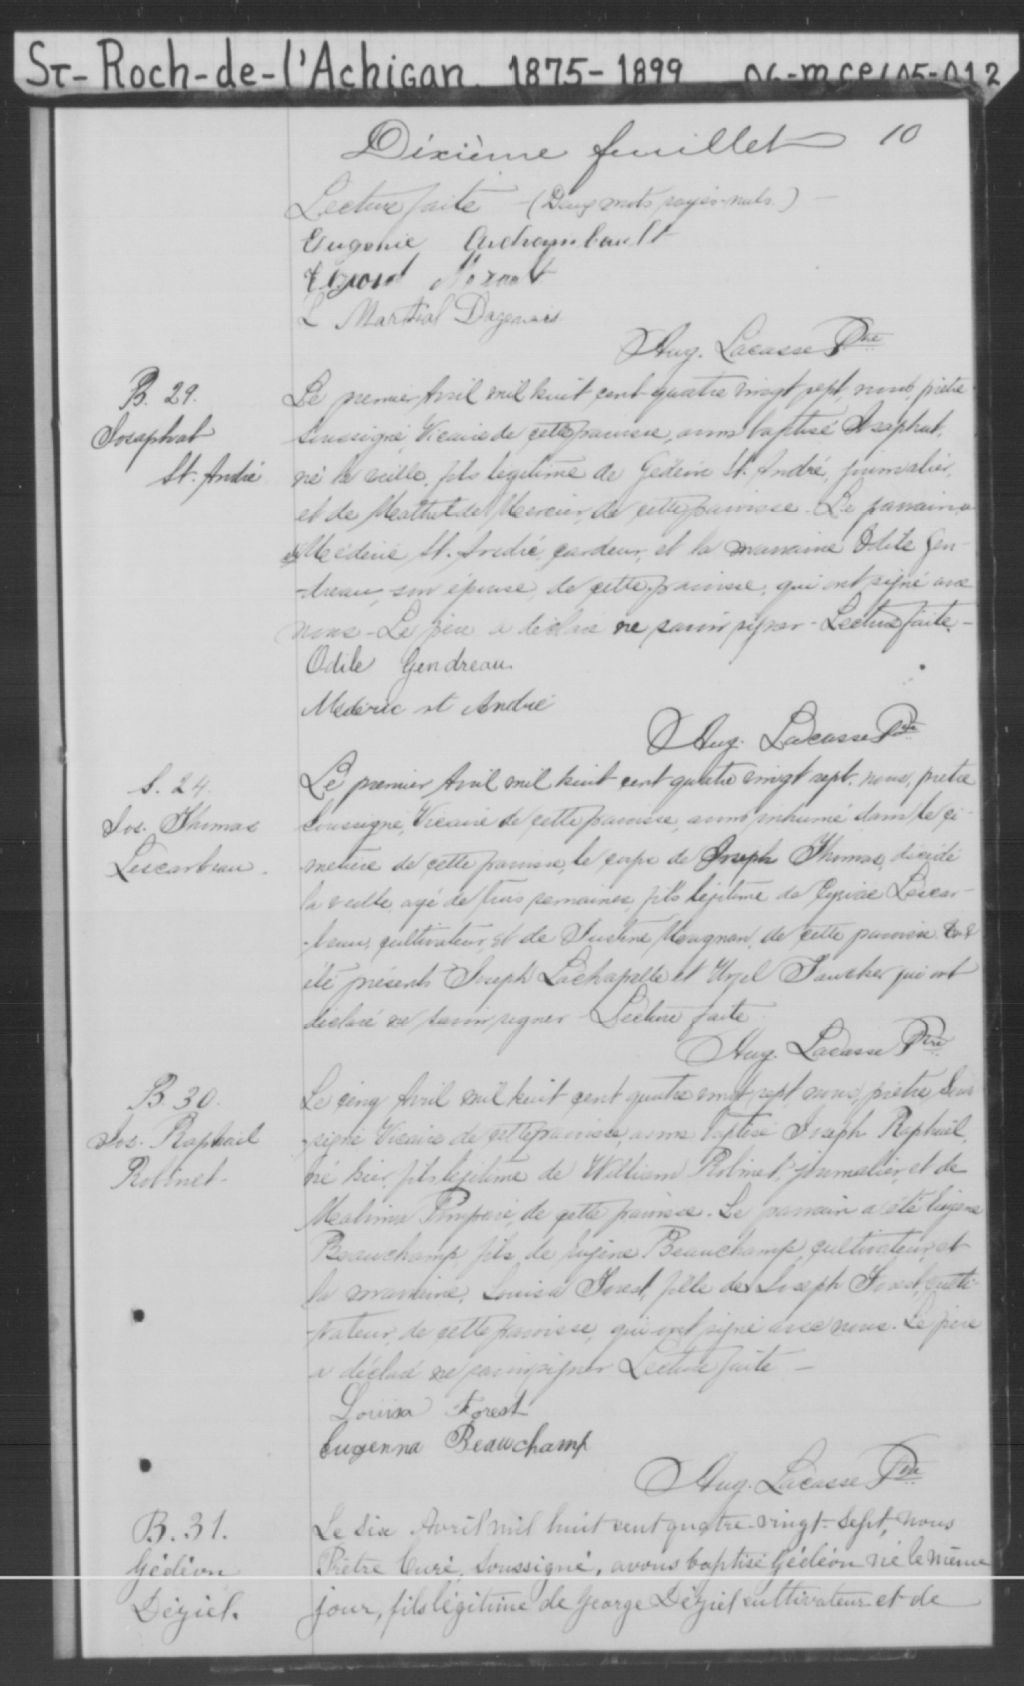 St-Roch-de-l'Achigan 1875-1899 06-mCE605-012
Dixième feuillet 10
Lecture faite - (Deux mots rayés nuls.) -
Eugenie Archambault
L Martial Dagenais
Aug. Lacasse Ptre
B. 29.
Josaphat
St. André
Le premier Avril mil huit cent quatre vingt sept, nous, prêtre
soussigné, Vicaire de cette paroisse, avons baptisé Josaphat,
né la veille, fils légitime de Gédéon St. André, journalier,
et de Mathilde Mercier, de cette paroisse. Le parrain a
été Médéric St. André, cardeur, et la marraine Odile Gen-
-dreau, son épouse, de cette paroisse, qui ont signé avec
nous - Le père a déclaré ne savoir signer - Lecture faite. -
Odile Gendreau
Mederic st André
Aug. Lacasse Ptre
S. 24.
Jos. Thomas
Lescarbeau.
Le premier Avril mil huit cent quatre vingt sept, nous, prêtre
soussigné, Vicaire de cette paroisse, avons inhumé dans le ci-
metière de cette paroisse, le corps de Joseph Thomas, décédé
la veille, agé de trois semaines, fils légitime de Cyriac Lescar-
-beau, cultivateur, et de Justine Magnan, de cette paroisse. Ont
été présents Joseph Lachapelle et Urgel Faucher qui ont
déclaré ne savoir signer - Lecture faite
Aug. Lacasse Ptre
B. 30.
Jos. Raphaïl
Robinet.
Le cinq Avril mil huit cent quatre vingt sept, nous, prêtre Sous
signé, Vicaire de cette paroisse, avons baptisé Joseph Raphaïl,
né hier, fils légitime de William Robinet, journalier, et de
Malvina, de cette paroisse. Le parrain a été Eugène
Beauchamp, fils de Eugène Beauchamp, cultivateur, et
la marraine, Louisa Forest, fille de Joseph Forest, culti-
vateur, de cette paroisse, qui ont signé avec nous. Le père
a déclaré ne savoir signer Lecture faite -
Louisa Forest
Eugenna Beauchamp
Aug. Lacasse Ptre
B. 31.
Gédéon
Déziel.
Le six Avril mil huit cent quatre-vingt-sept, nous
Prêtre Curé, Soussigné, avons baptisé Gédéon né le même
jour, fils légitime de George Déziel cultivateur et de